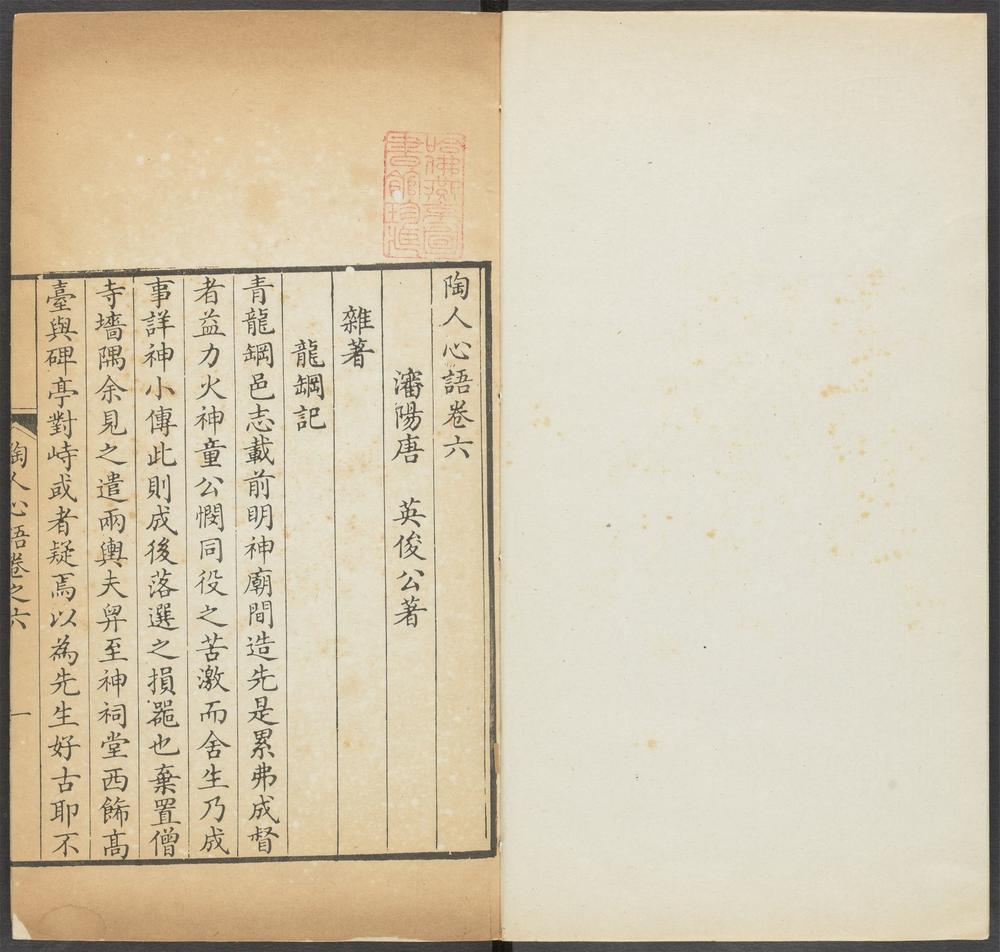 哈佛燕京圖
書館珍藏
陶人心語卷六
瀋陽唐 英俊公著
雜著
龍缸記
青龍缸邑志載前明神廟間造先是累弗成督
者益力火神童公憫同役之苦激而舍生乃成
事詳神小傳此則成後落選之損器也棄置僧
寺墻隅余見之遣兩輿夫舁至神祠堂西飾高
臺與碑亭對峙或者疑焉以為先生好古耶不
陶人心語卷之六 一